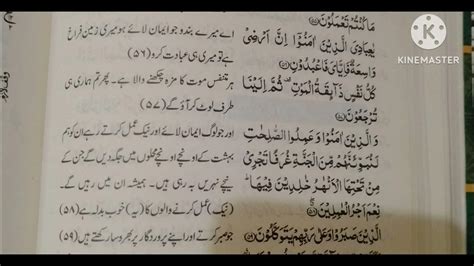 مَا كُنْتُمْ تَعْمَلُوْنَ ﴿۵۵﴾
يٰعِبَادِيَ الَّذِيْنَ اٰمَنُوْٓا اِنَّ اَرْضِيْ
وَاسِعَةٌ فَاِيَّايَ فَاعْبُدُوْنِ ﴿۵۶﴾
كُلُّ نَفْسٍ ذَآئِقَةُ الْمَوْتِ ثُمَّ اِلَيْنَا
تُرْجَعُوْنَ ﴿۵۷﴾
وَالَّذِيْنَ اٰمَنُوْا وَعَمِلُوا الصّٰلِحٰتِ
لَنُبَوِّئَنَّهُمْ مِّنَ الْجَنَّةِ غُرَفًا تَجْرِيْ
مِنْ تَحْتِهَا الْاَنْهٰرُ خٰلِدِيْنَ فِيْهَا
نِعْمَ اَجْرُ الْعٰمِلِيْنَ ﴿۵۸﴾
الَّذِيْنَ صَبَرُوْا وَعَلٰى رَبِّهِمْ يَتَوَكَّلُوْنَ ﴿۵۹﴾
اے میرے بندو جو ایمان لائے ہو میری زمین فراخ
ہے تو میری ہی عبادت کرو (۵۶)
ہر متنفس موت کا مزہ چکھنے والا ہے۔ پھر تم ہماری ہی
طرف لوٹ کر آؤ گے (۵۷)
اور جو لوگ ایمان لائے اور نیک عمل کرتے رہے ان کو ہم
بہشت کے اونچے اونچے محلوں میں جگہ دیں گے جن کے
نیچے نہریں بہہ رہی ہیں۔ ہمیشہ ان میں رہیں گے۔
(نیک) عمل کرنے والوں کا (یہ) خوب بدلہ ہے (۵۸)
جو صبر کرتے اور اپنے پروردگار پر بھروسا رکھتے ہیں (۵۹)
KINEMASTER